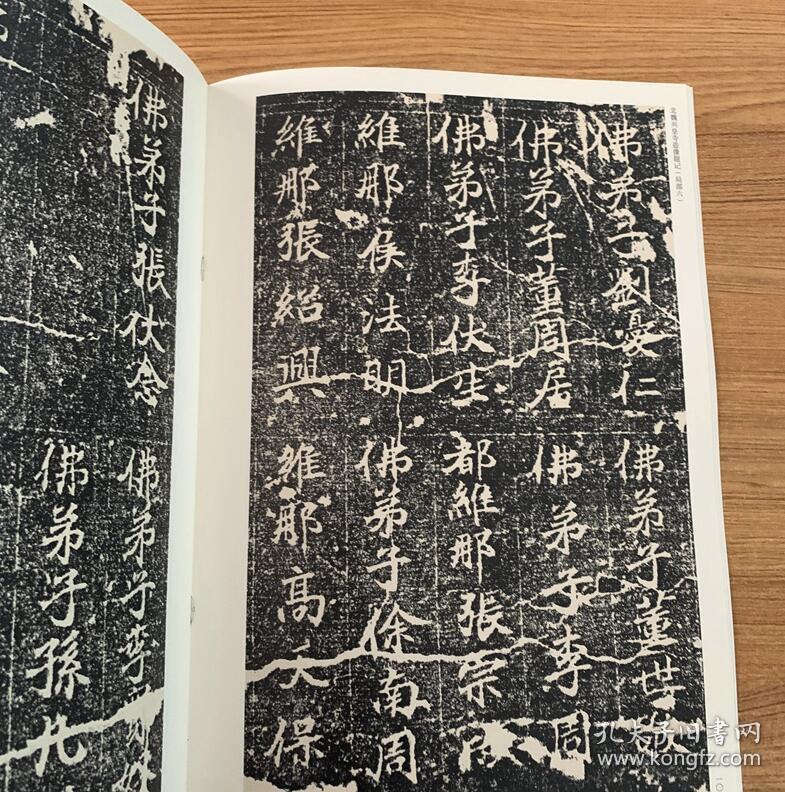 北魏興皇寺造像題記（局部六）
佛弟子劉憂仁
佛弟子董周居
佛弟子李伏生
維那侯法明
維那張紹興
佛弟子董世
佛弟子李周
都維那張宗
佛弟子徐南周
維那高天保
佛弟子張伏念
佛弟子李
佛弟子孫
孔夫子旧书网
kongfz.com